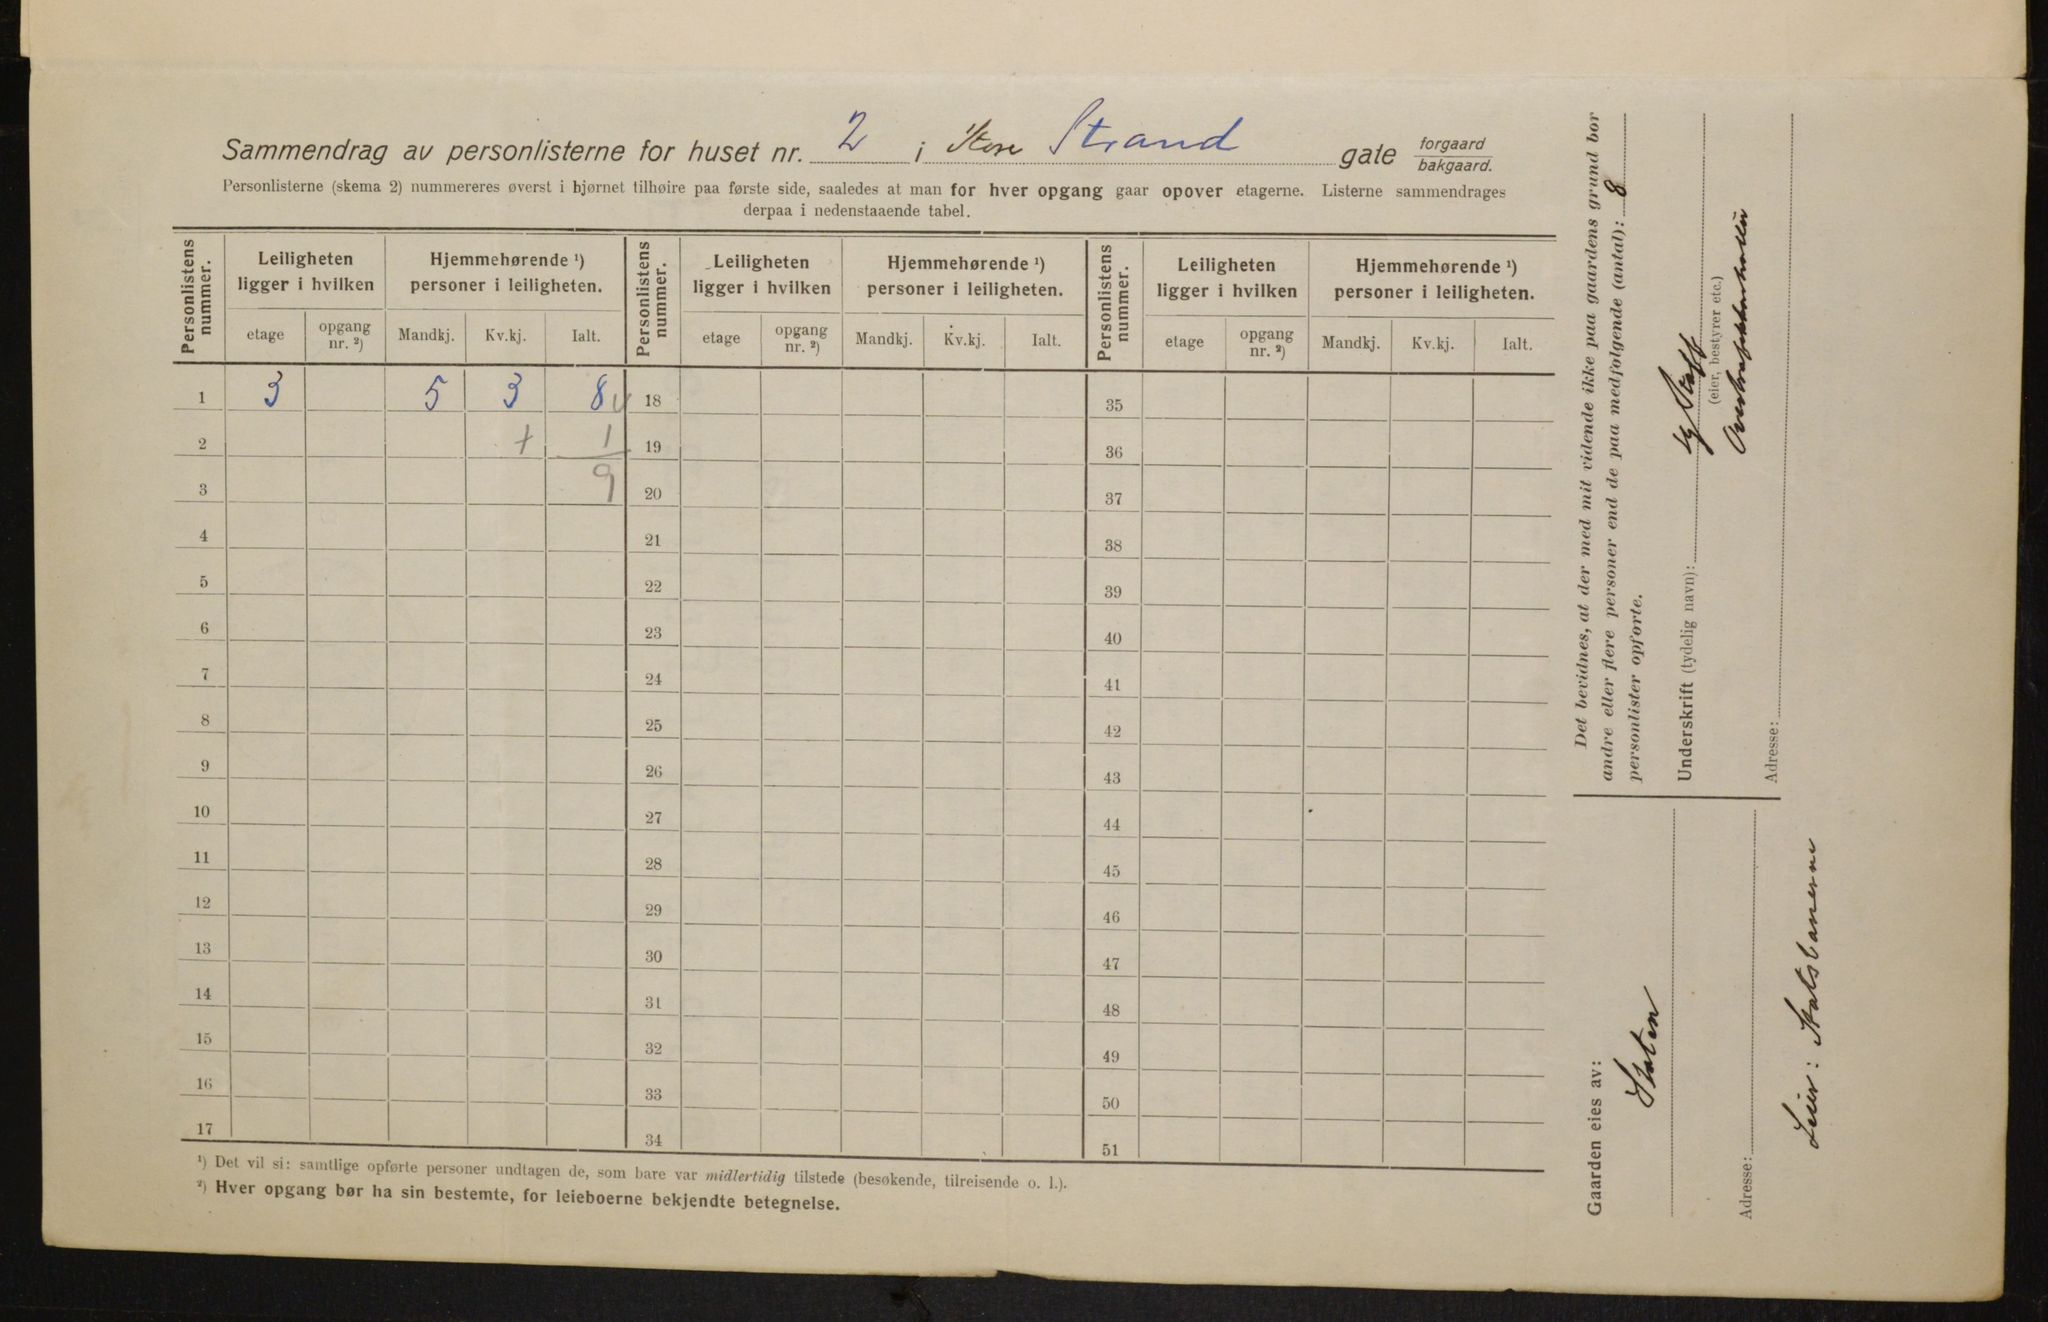 Sammendrag av personlisterne for huset nr. 2 i Store Strand gate forgaard bakgaard.
Personlisterne (skema 2) nummereres øverst i hjørnet tilhøire paa første side, saaledes at man for hver opgang gaar opover etagerne. Listerne sammendrages
derpaa i nedenstaaende tabel.
Personlistens nummer. Leiligheten ligger i hvilken Hjemmehørende ¹) personer i leiligheten. Personlistens nummer. Leiligheten ligger i hvilken Hjemmehørende ¹) personer i leiligheten. Personlistens nummer. Leiligheten ligger i hvilken Hjemmehørende ¹) personer i leiligheten.
etage opgang nr. ²) Mandkj. Kv.kj. Ialt. etage opgang nr. ²) Mandkj. Kv.kj. Ialt. etage opgang nr. ²) Mandkj. Kv.kj. Ialt.
1 3 5 3 8 18 35
2 + 1 19 36
3 9 20 37
4 21 38
5 22 39
6 23 40
7 24 41
8 25 42
9 26 43
10 27 44
11 28 45
12 29 46
13 30 47
14 31 48
15 32 49
16 33 50
17 34 51
¹) Det vil si: samtlige opførte personer undtagen de, som bare var midlertidig tilstede (besøkende, tilreisende o. l.).
²) Hver opgang bør ha sin bestemte, for leieboerne bekjendte betegnelse.
Det bevidnes, at der med mit vidende ikke paa gaardens grund bor
andre eller flere personer end de paa medfølgende (antal): 8
personlister opførte.
Underskrift (tydelig navn):
(eier, bestyrer etc.)
Adresse:
Gaarden eies av:
Staten
Adresse:
Leier: Statsbanerne